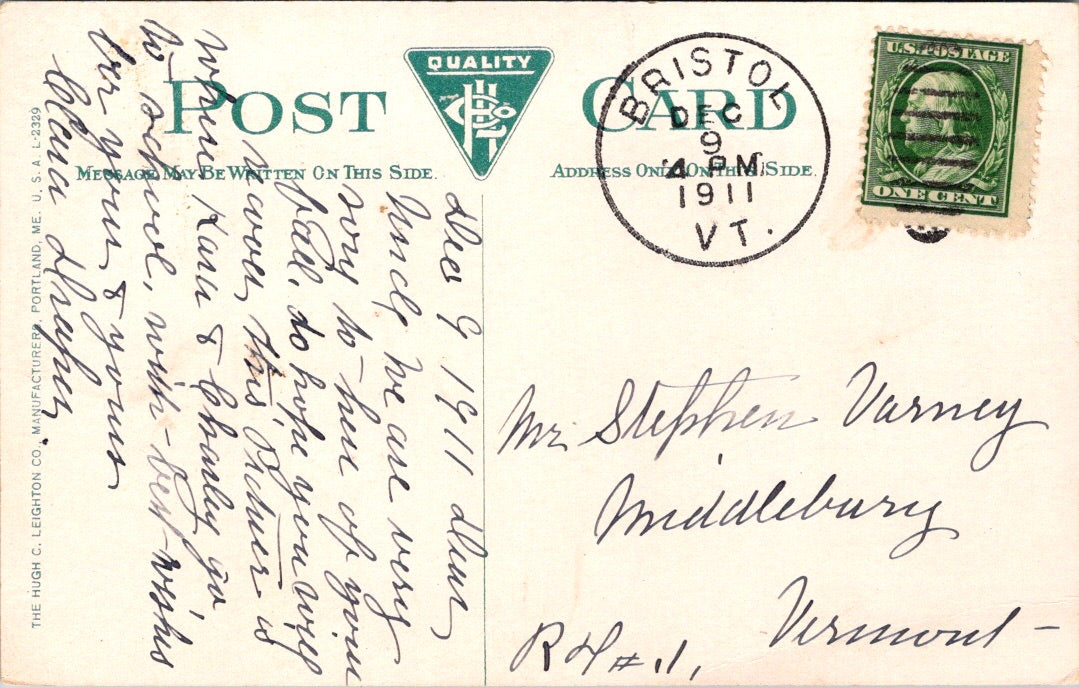 POST CARD
QUALITY
MESSAGE MAY BE WRITTEN ON THIS SIDE.
ADDRESS ONLY ON THIS SIDE.
BRISTOL
DEC
9
4 PM
1911
VT.
U.S. POSTAGE
ONE CENT
Dec 9 1911 dear
Uncle we are very
sory to hear of your
fall, do hope you will
recover, this picture is
where & Charley go
to school, with best wishes
for you & yours
Clara Draper
Mr Stephen Varney
Middlebury
Vermont
R # 1,
THE HUGH C. LEIGHTON CO., MANUFACTURERS, PORTLAND, ME. U. S. A. L-2329